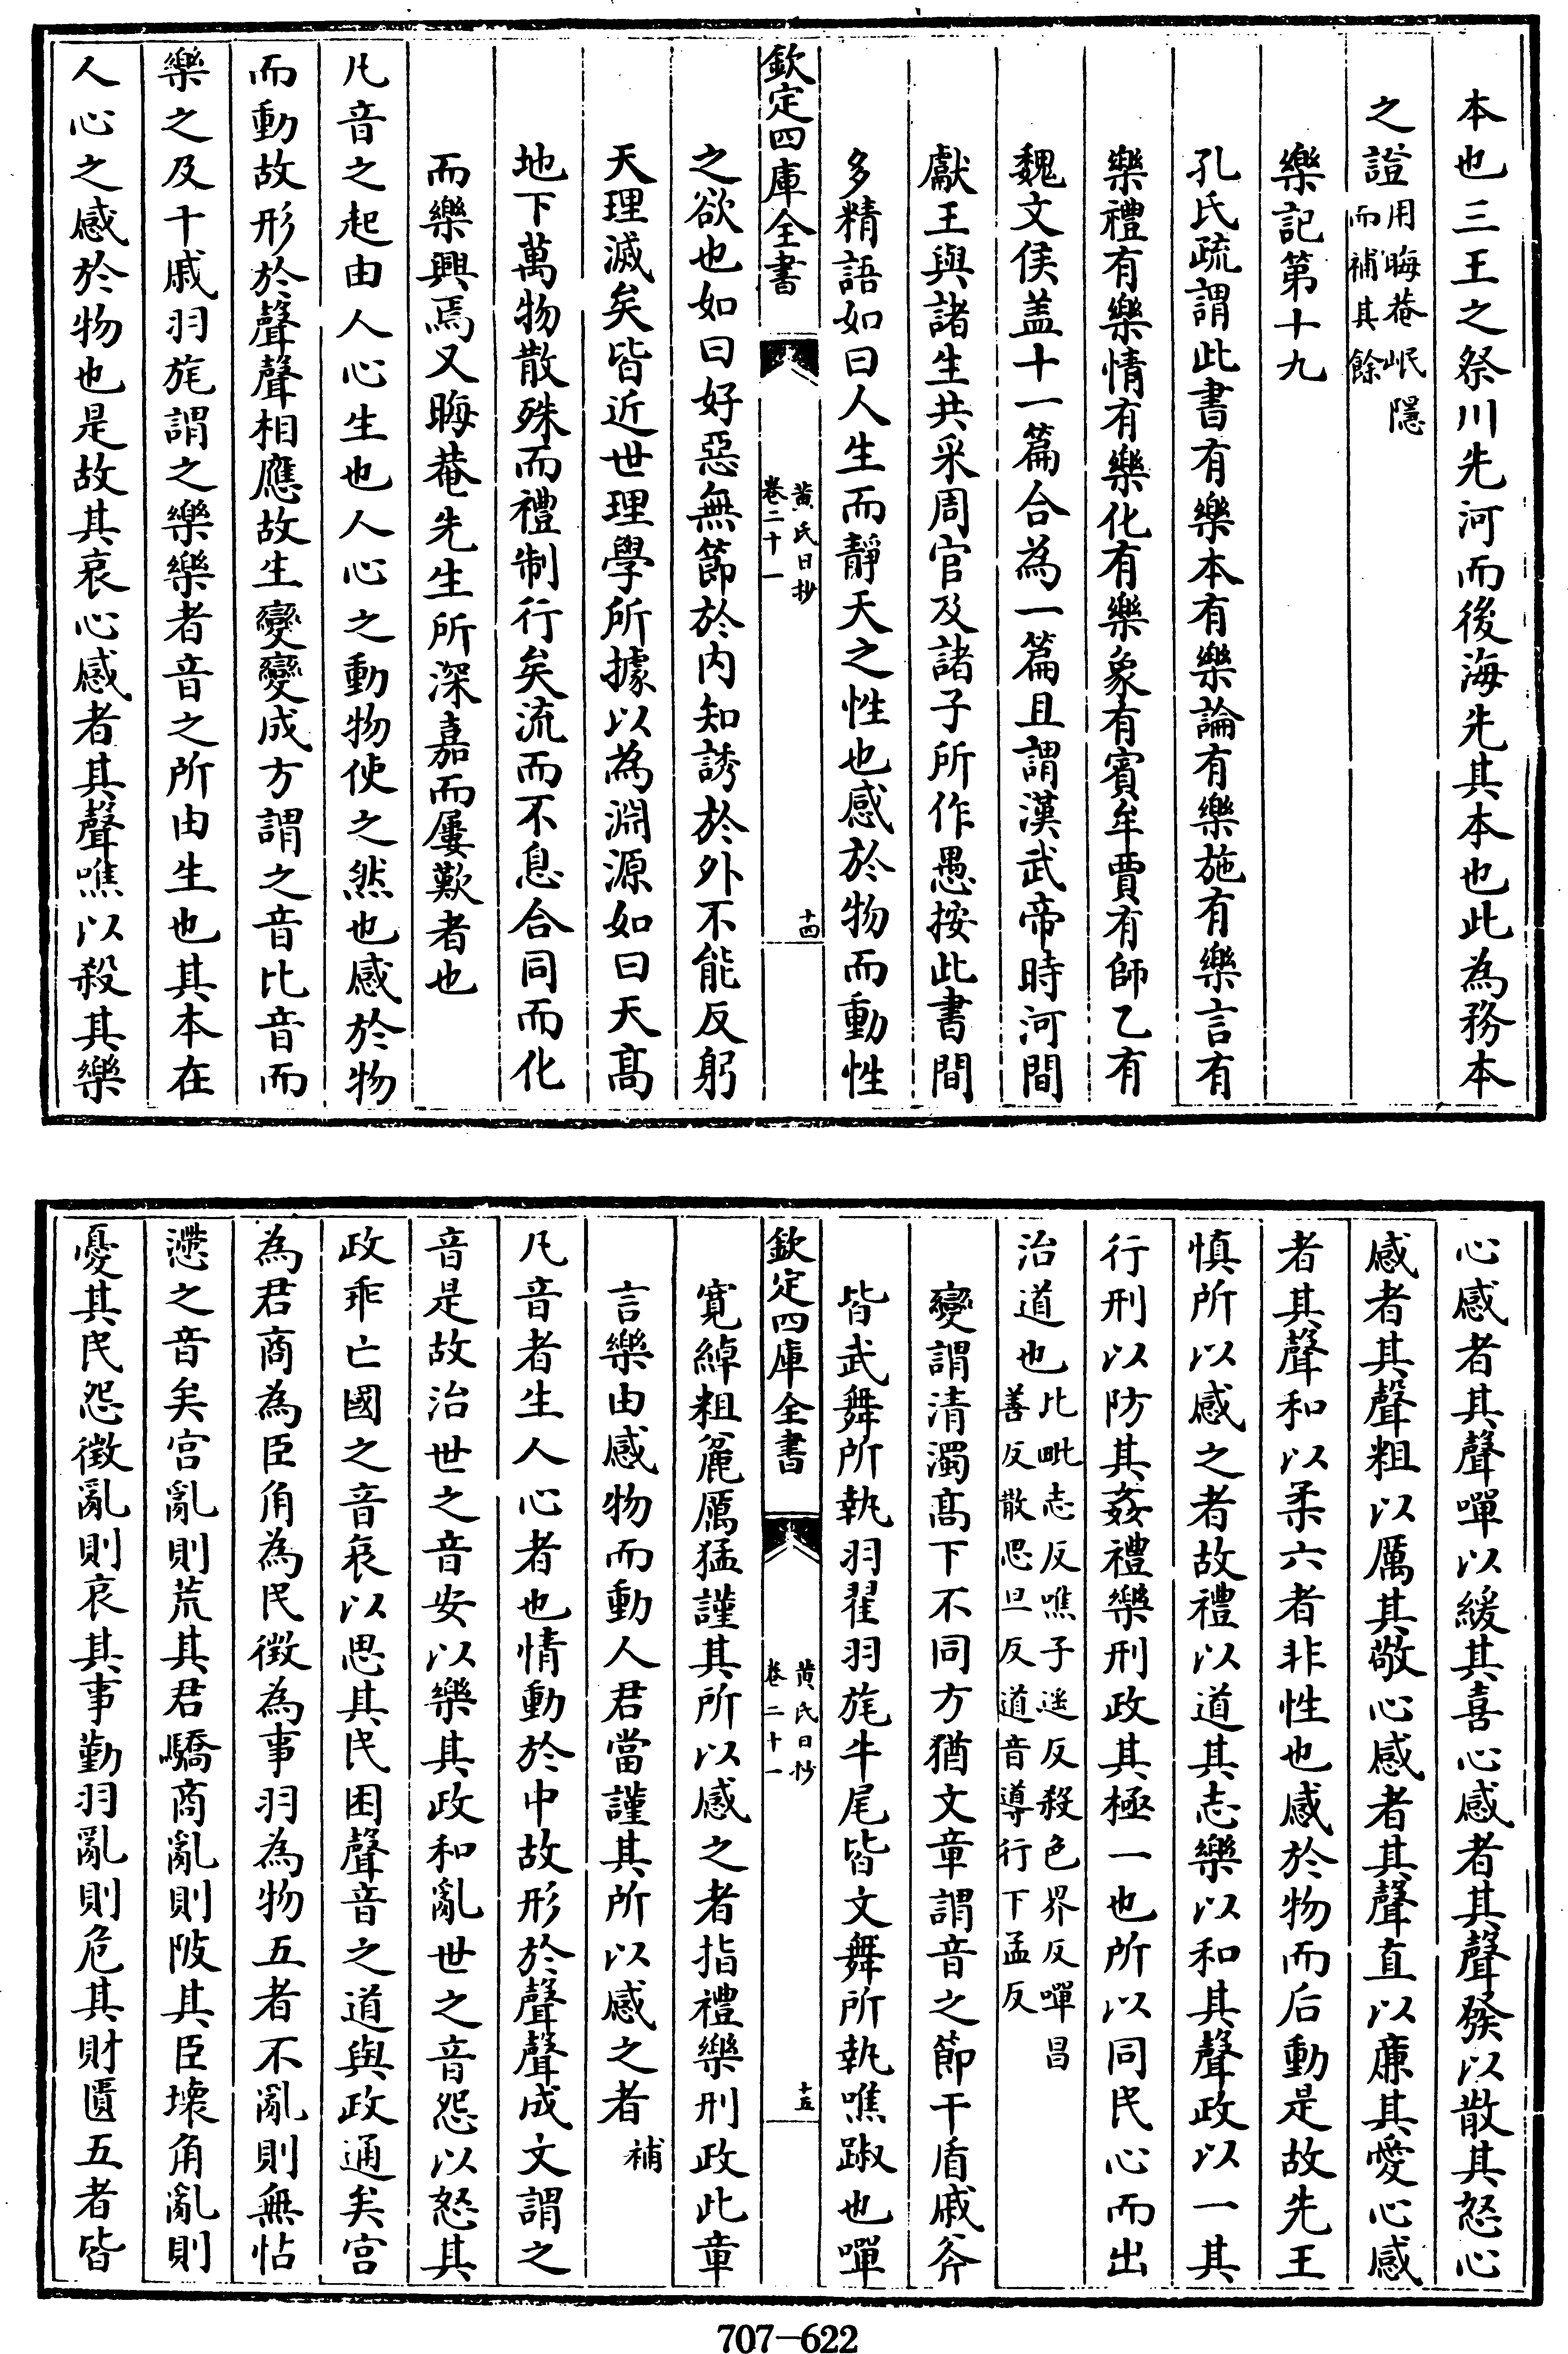 本也三王之祭川先河而後海先其本也此為務本
之證用晦菴岷隱
而補其餘
樂記第十九
孔氏疏謂此書有樂本有樂論有樂施有樂言有
樂禮有樂情有樂化有樂象有賓牟賈有師乙有
魏文侯盖十一篇合為一篇且謂漢武帝時河間
獻王與諸生共采周官及諸子所作愚按此書間
多精語如曰人生而靜天之性也感於物而動性
欽定四庫全書
黃氏日抄
卷二十一
十四
之欲也如曰好惡無節於内知誘於外不能反躬
天理滅矣皆近世理學所據以為淵源如曰天髙
地下萬物散殊而禮制行矣流而不息合同而化
而樂興焉又晦菴先生所深嘉而屢歎者也
凡音之起由人心生也人心之動物使之然也感於物
而動故形於聲聲相應故生變變成方謂之音比音而
樂之及干戚羽旄謂之樂樂者音之所由生也其本在
人心之感於物也是故其哀心感者其聲噍以殺其樂
心感者其聲嘽以緩其喜心感者其聲發以散其怒心
感者其聲粗以厲其敬心感者其聲直以廉其愛心感
者其聲和以柔六者非性也感於物而后動是故先王
慎所以感之者故禮以道其志樂以和其聲政以一其
行刑以防其姦禮樂刑政其極一也所以同民心而出
治道也比毗志反噍子遥反殺色界反嘽昌
善反散思旦反道音導行下孟反
變謂清濁髙下不同方猶文章謂音之節干盾戚斧
皆武舞所執羽翟羽旄牛尾皆文舞所執噍踧也嘽
欽定四庫全書
黃氏日抄
卷二十一
十五
寛綽粗麄厲猛謹其所以感之者指禮樂刑政此章
言樂由感物而動人君當謹其所以感之者補
凡音者生人心者也情動於中故形於聲聲成文謂之
音是故治世之音安以樂其政和亂世之音怨以怒其
政乖亡國之音哀以思其民困聲音之道與政通矣宫
為君商為臣角為民徵為事羽為物五者不亂則無怗
懘之音矣宫亂則荒其君驕商亂則陂其臣壊角亂則
憂其民怨徵亂則哀其事勤羽亂則危其財匱五者皆
707—622